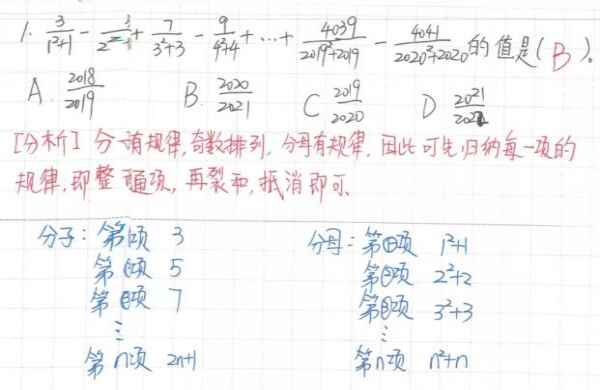 1. 3/(1²+1) - /(2²+) + 7/(3²+3) - 9/(4²+4) + … + 4039/(2019²+2019) - 4041/(2020²+2020) 的值是( B )。
A. 2018/2019 B. 2020/2021 C 2019/2020 D 2021/2022
[分析] 分 有规律,奇数排列,分母有规律,因此可先归纳每一项的
规律,即整 通项,再裂和,抵消即可.
分子: 第①项 3 分母: 第①项 1²+1
第②项 5 第②项 2²+2
第③项 7 第③项 3²+3
⋮ ⋮
第n项 2n+1 第n项 n²+n